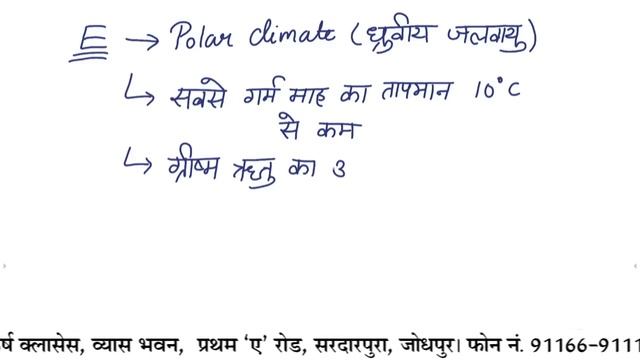 E → Polar climate (ध्रुवीय जलवायु)
↳ सबसे गर्म माह का तापमान 10°C
से कम
↳ ग्रीष्म ऋतु का
र्ष क्लासेस, व्यास भवन, प्रथम ‘ए’ रोड, सरदारपुरा, जोधपुर। फोन नं. 91166-9111